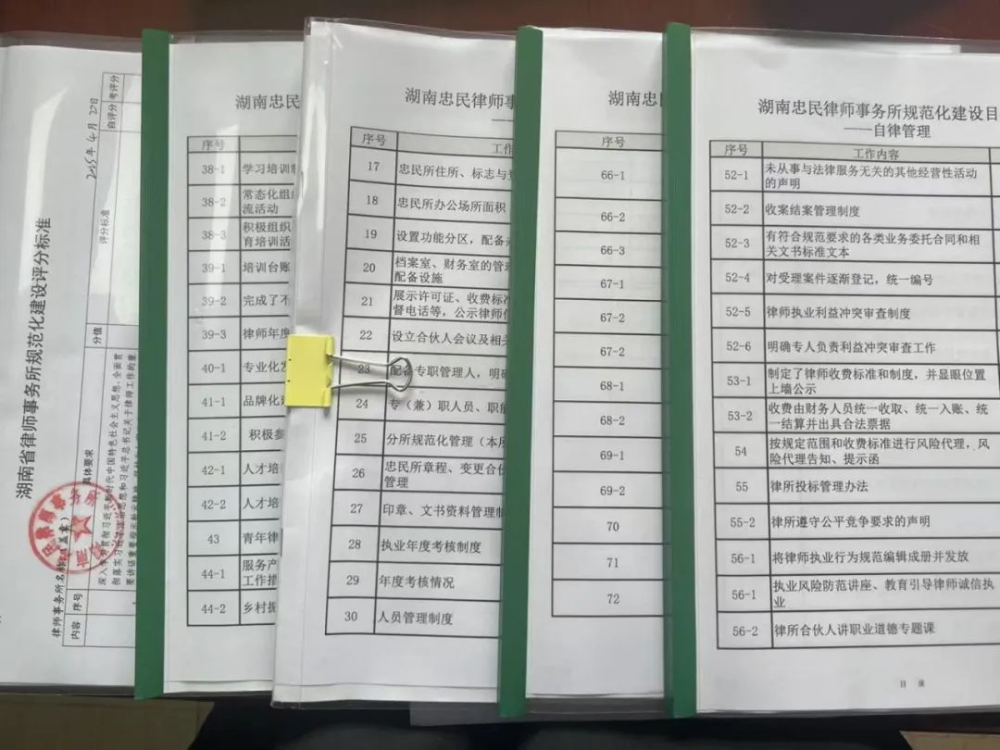 湖南省律师事务所规范化建设评分标准
自评分
考评分
评分标准
分值
具体要求
律师事务所名称
内容
序号
湖南忠民
序号
38-1 学习培训
38-2 常态化组
流活动
38-3 积极组织
育培训活
39-1 培训台账
39-2 完成了不
39-3 律师年度
40-1 专业化发
41-1 品牌化建
41-2 积极参
42-1 人才培
42-2 人才培
43 青年律
44-1 服务产
工作措
44-2 乡村振
湖南忠民律师事
序号 工作
17 忠民所住所、标志与
18 忠民所办公场所面积
19 设置功能分区，配备
20 档案室、财务室的管
配备设施
21 展示许可证、收费标
督电话等，公示律师
22 设立合伙人会议及相
23 配备专职管理人，明
24 专（兼）职人员、职
25 分所规范化管理（本所
26 忠民所章程、变更合伙
管理
27 印章、文书资料管理制
28 执业年度考核制度
29 年度考核情况
30 人员管理制度
湖南忠民
序号
66-1
66-2
66-3
67-1
67-2
67-2
68-1
68-2
69-1
69-2
70
71
72
湖南忠民律师事务所规范化建设目
——自律管理
序号 工作内容
52-1 未从事与法律服务无关的其他经营性活动
的声明
52-2 收案结案管理制度
52-3 有符合规范要求的各类业务委托合同和相
关文书标准文本
52-4 对受理案件逐渐登记，统一编号
52-5 律师执业利益冲突审查制度
52-6 明确专人负责利益冲突审查工作
53-1 制定了律师收费标准和制度，并显眼位置
上墙公示
53-2 收费由财务人员统一收取、统一入账、统
一结算并出具合法票据
54 按规定范围和收费标准进行风险代理，风
险代理告知、提示函
55 律所投标管理办法
55-2 律所遵守公平竞争要求的声明
56-1 将律师执业行为规范编辑成册并发放
56-1 执业风险防范讲座、教育引导律师诚信执
业
56-2 律所合伙人讲职业道德专题课
目 录